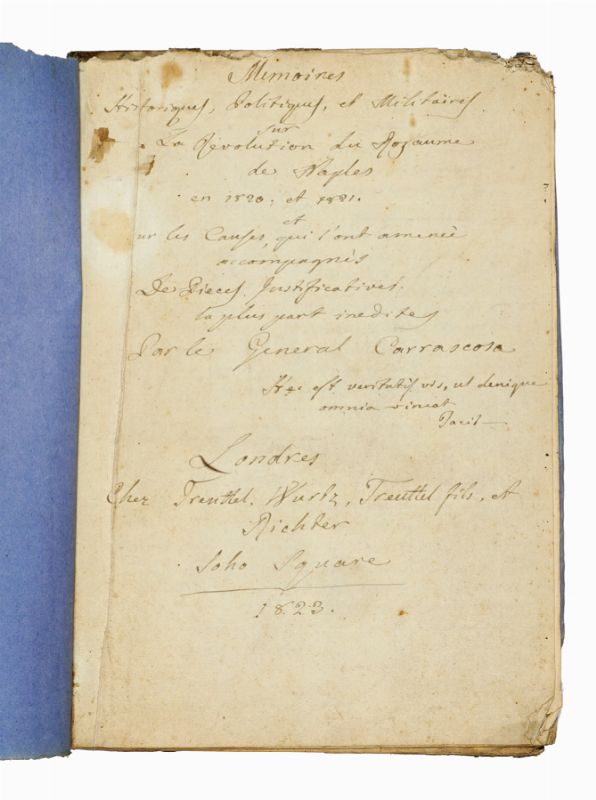 Memoires
Historiques, Politiques, et Militaires
sur
La Révolution du Royaume
de Naples
en 1820. et 1821.
et
sur les Causes, qui l'ont amenèe
accompagnès
De Pieces Justificatives.
la plus part inedites
Par le General Carrascosa
Hec est veritatis vis, ut denique
omnia vincat
Tacit
Londres
Chez Treuttel. Wurtz, Treuttel fils, et
Richter
Soho Square
1823.